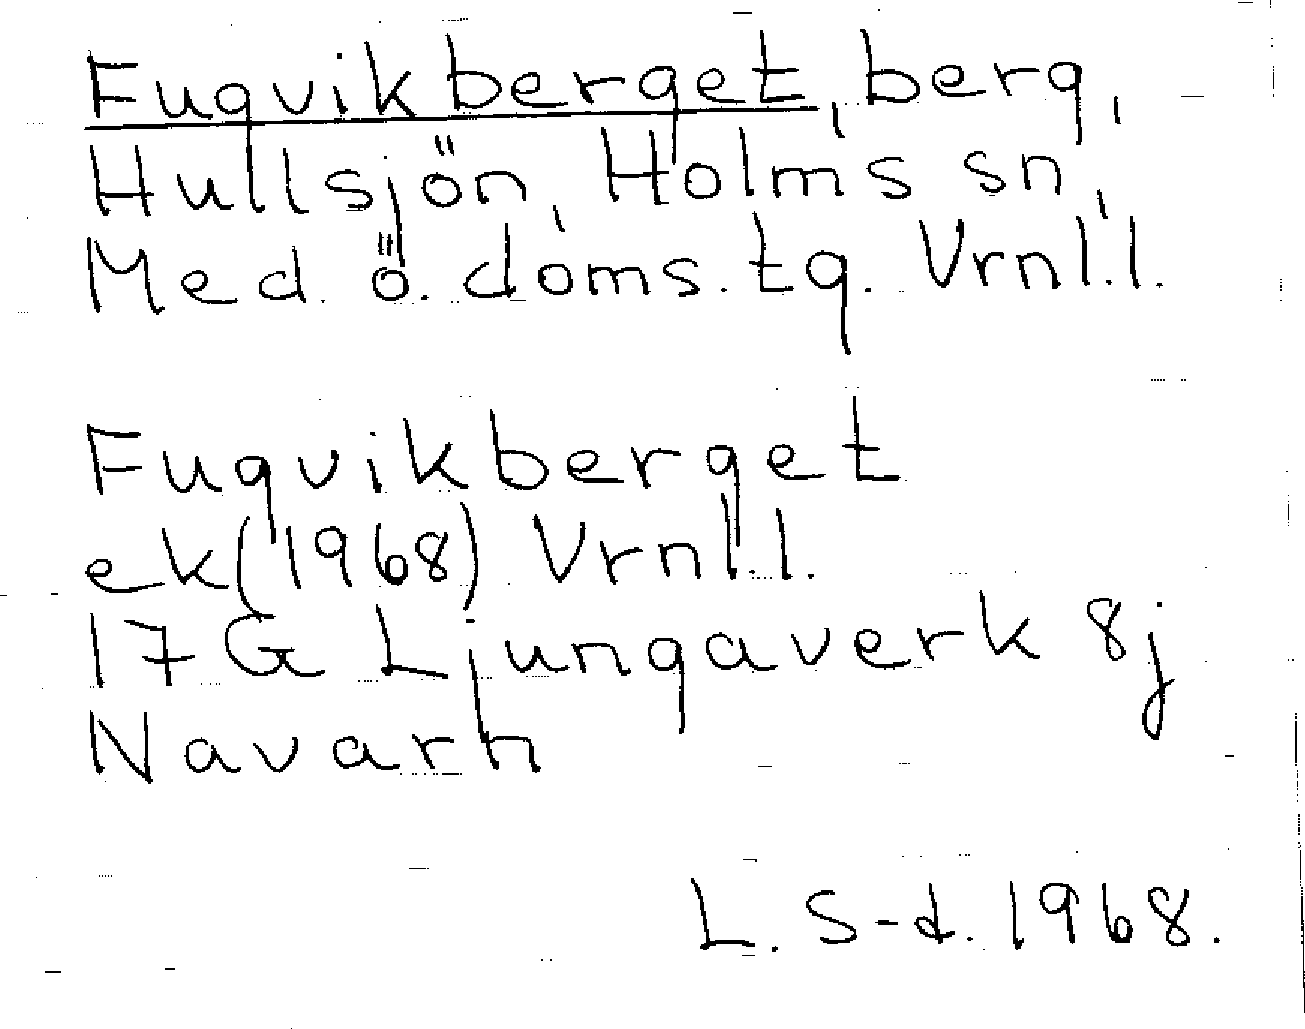 Fugvikberget, berg,
Hullsjön, Holms sn,
Med. ö. doms. tg. Vrnl.l.
Fugvikberget
ek(1968) Vrnl.l.
17G Ljungaverk 8j
Navarn
L. S-d. 1968.